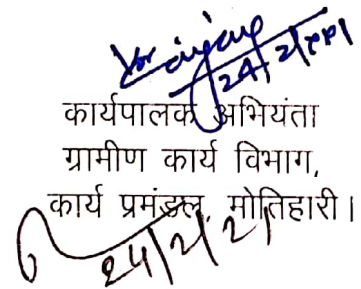 कार्यपालक अभियंता
ग्रामीण कार्य विभाग,
कार्य प्रमंडल, मोतिहारी।
24/2/21